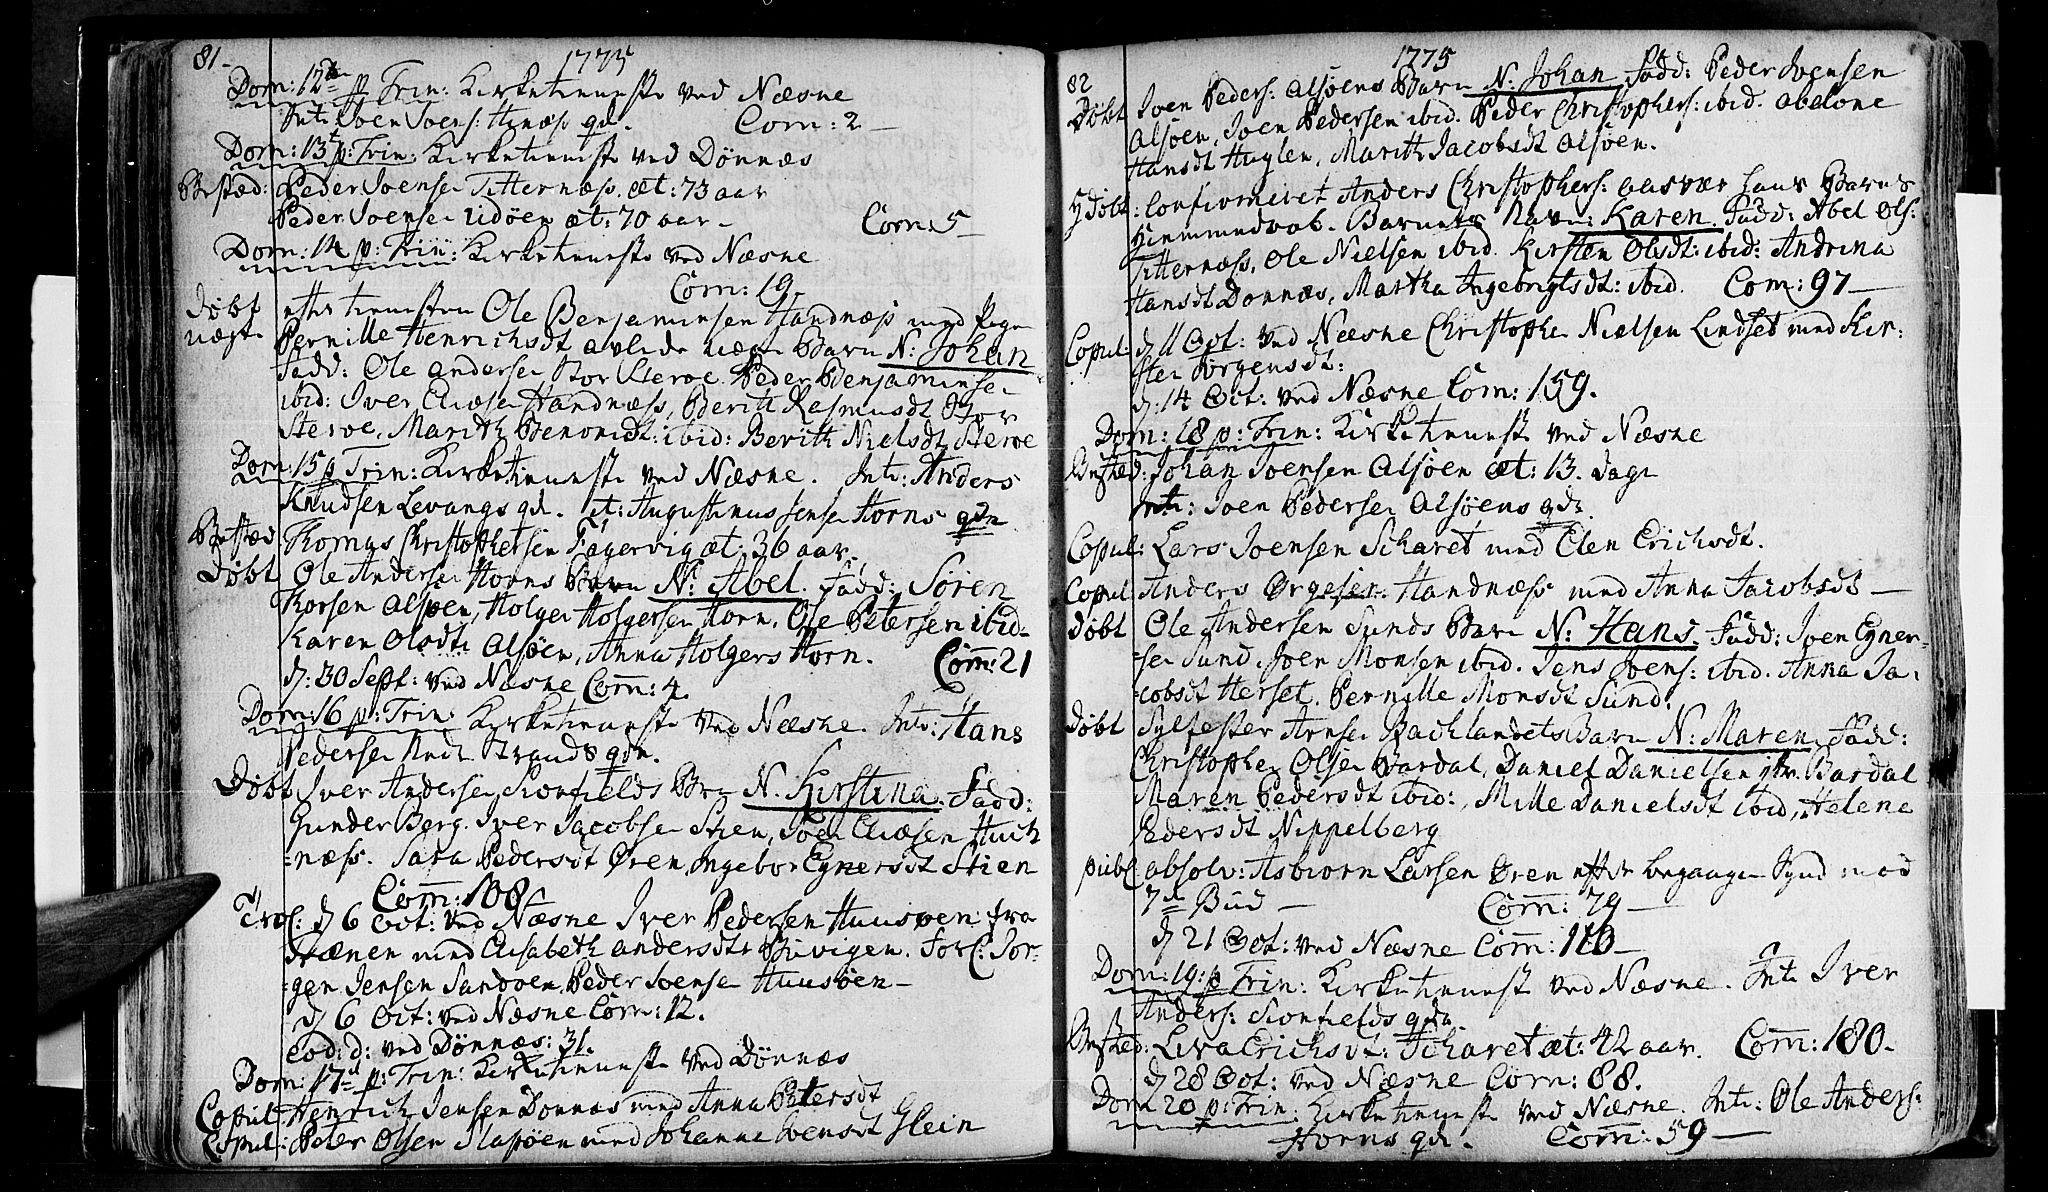 81.
1775
Dom: 12te p Trin: Kirketieniste ved Næsne
Int: Joen Joens: Hinæss qd. Com: 2 —
Dom: 13t p: Trin: Kirketieniste ved Dönnæs
Bested: Peder Joensen Titternæss. æt: 73 aar
Peder Joensen Udöen æt: 70 aar — Com: 5 —
Dom: 14 p: Trin: Kirketieniste ved Næsne
Com: 19.
Döbt efter tienesten Ole Benjaminsen Handnæss med Pige
uægte Pernille Henrichsdt avlede uægte Barn N: Johan
Fadd: Ole Andersen Stor Sterve. Peder Benjaminsen
ibid: Iver Eliæsen Handnæss, Berith Rasmusdt Stor
Sterve, Marith Benonidt: ibid: Berith Nielsdt Sterve
Dom: 15 p Trin: Kirketieniste ved Næsne. Int: Anders
Knudsen Levangs qd. It: Augustinus Jensen Horns qda
Bested Thomas Christophersen Fagervig æt: 36 aar.
Döbt Ole Andersen Horns Barn N: Abel. Fadd: Sören
Thorsen Alsöen, Holger Holgersen Horn, Ole Petersen ibid.
Karen Olsdtr Alsöen, Anna Holgers Horn. Com: 21
d: 30 Sept: ved Næsne Com: 4.
Dom: 16 p: Trin: Kirketieniste ved Næsne. Int: Hans
Pedersen Strands qda.
Döbt Iver Andersen Skonfields Bn N. Kirstina. Fadd:
Gunder Berg. Iver Jacobsen Stien, Joen Eliæsen Huch
=næss. Sara Pedersdt Ören, Ingebor Egnersdt Stien
Com: 108
Trol: d 6 Oct: ved Næsne Iver Pedersen Huusöen fra
Trænen med Elisabeth Andersdtr Buvigen. Forl: Jör-
=gen Jensen Sandöen, Peder Joensen Huusöen —
d 6 Oct: ved Næsne Com: 12.
eod: d: ved Dönnæs: 31.
Dom: 17de p: Trin: Kirketieniste ved Dönnæs
Copul: Henrich Jensen Dönnæs med Anna Petersdt
Copul: Peter Olsen Slapöen med Johanna Joensdt Glein
82
1775
Döbt Joen Peders: Alsöens Barn N: Johan Fadd: Peder Joensen
Alsöen, Joen Pedersen ibid. Peder Christophers: ibid. Abelone
Hansdt Huglen, Marith Jacobsdt Alsöen.
Hdöbt: Confirmeret Anders Christophers: Aasvær hans Barns
Hiemmedaab. Barnets Navn: Karen. Fadd: Abel Ols:
Titternæss, Ole Nielsen ibid. Kirsten Olsdt: ibid: Andrina
Hansdt Dönnæs, Martha Ingebrigtsdt: ibid. Com: 97 —
Copul: d 11 Oct: ved Næsne Christopher Nielsen Lindset med Kir:
sten Jörgensdt:
d: 14 Oct: ved Næsne Com: 159.
Dom: 18 p: Trin: Kirketieniste ved Næsne
Bested: Johan Joensen Alsöen æt: 13. Dage
Int: Joen Pedersen Alsöens qda.
Copul: Lars Joensen Skaret med Elen Erichsdt.
Copul Anders Örgesen Handnæss med Anna Jacobsdt —
Döbt Ole Andersen Sunds Barn N: Hans. Fadd: Iver Egner-
=sen Sund, Joen Monsen ibid. Jens Joens: ibid. Anna Ja-
=cobsdt Herset. Pernille Monsdt Sund.
Döbt Sylfester Arnsen Backlandets Barn N: Maren. Fadd:
Christopher Olsen Bardal, Daniel Danielsen ytr. Bardal
Maren Pedersdt ibid:, Mille Danielsdt ibid, Helene
Edersdt Nippelberg
publ absolv: Asbiorn Larsen Ören efter begaagen Synd mod
7de Bud — Com: 79 —
d 21 Oct: ved Næsne Com: 110 —
Dom: 19: p Trin: Kirketieniste ved Næsne. Int: Iver
Anders: Skonfields qda
Bested: Liva Erichsdt: Skaret æt: 42 aar. Com: 180 —
d 28 Oct: ved Næsne Com: 88.
Dom 20 p: Trin: Kirketieniste ved Næsne. Int: Ole Anders:
Horns qd. Com: 59 —